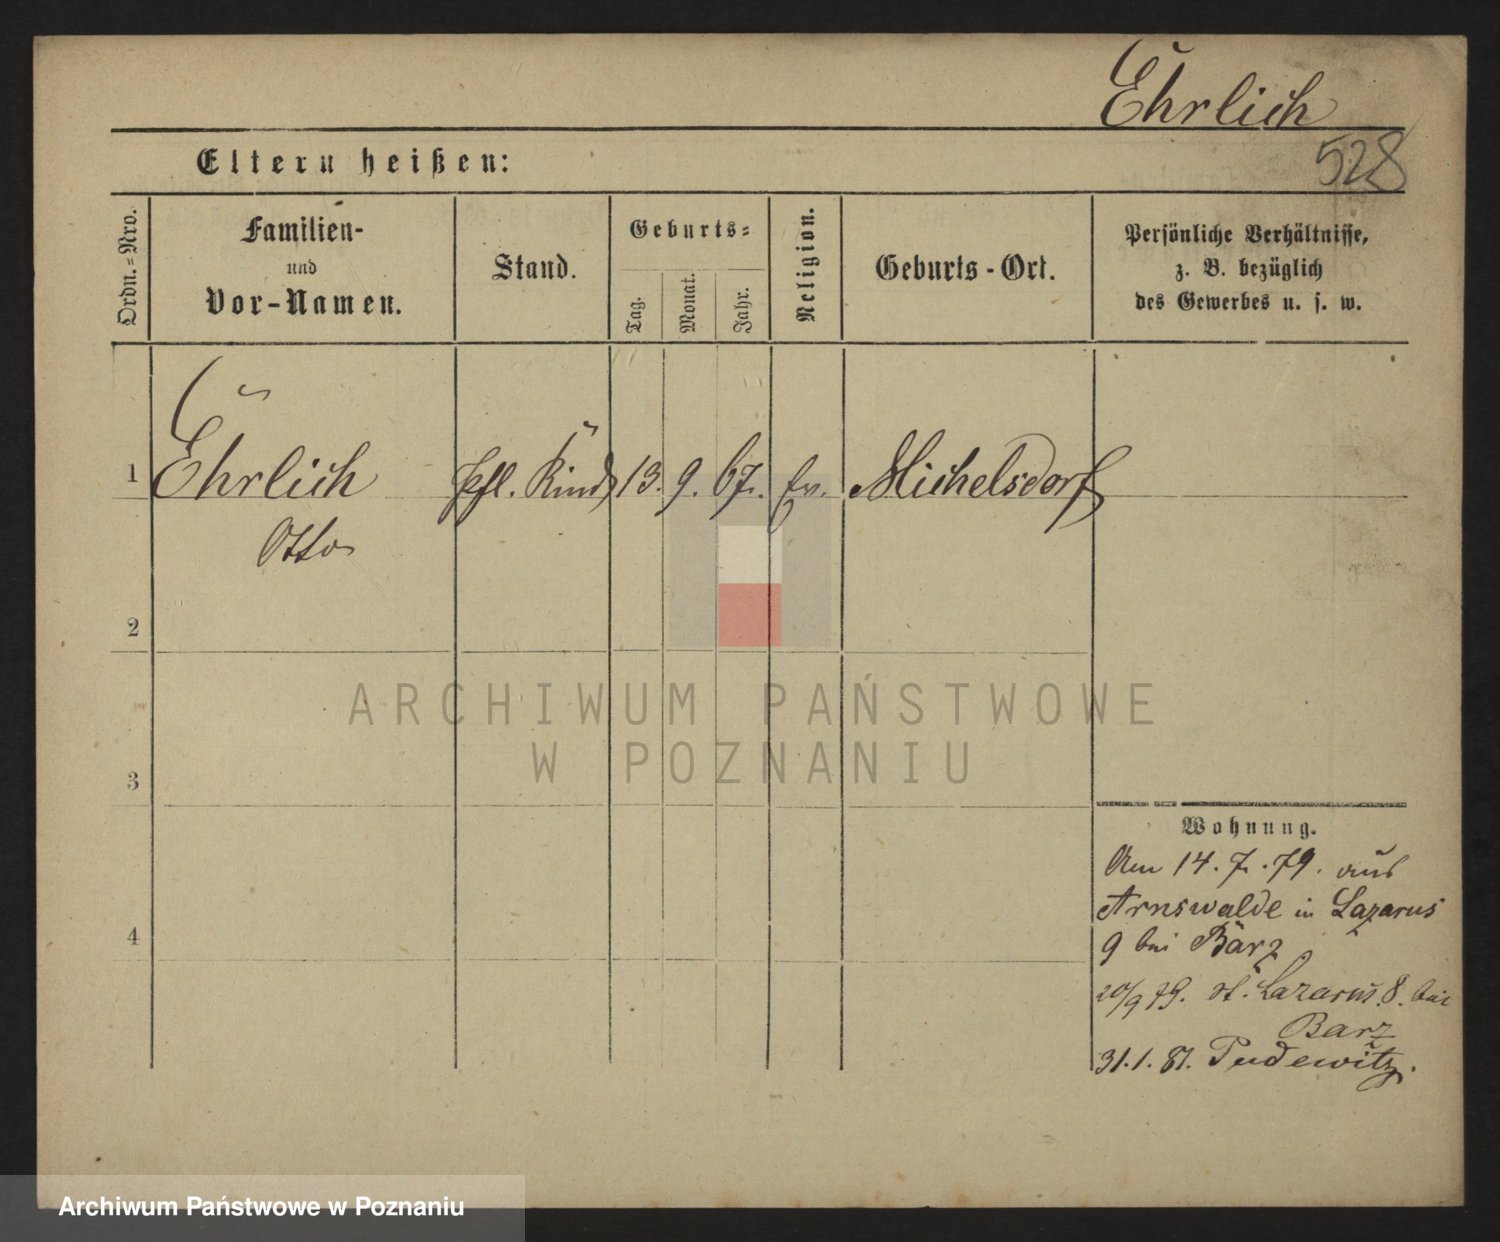 Ehrlich
528
Eltern heißen:
Ordn.-Nro.
Familien-
und
Vor-Namen.
Stand.
Geburts-
Tag.
Monat.
Jahr.
Religion.
Geburts-Ort.
Persönliche Verhältnisse,
z. B. bezüglich
des Gewerbes u. s. w.
1
Ehrlich
Otto
Pfl. Kind
13.
9.
67.
Ev.
Michelsdorf
2
ARCHIWUM PAŃSTWOWE
W POZNANIU
3
4
Wohnung.
Am 14. 7. 79. aus
Arnswalde in Lazarus
9 bei Barz
20/9 79. St. Lazarus. 8. bei
Barz
31. 1. 81. Pudewitz.
Archiwum Państwowe w Poznaniu